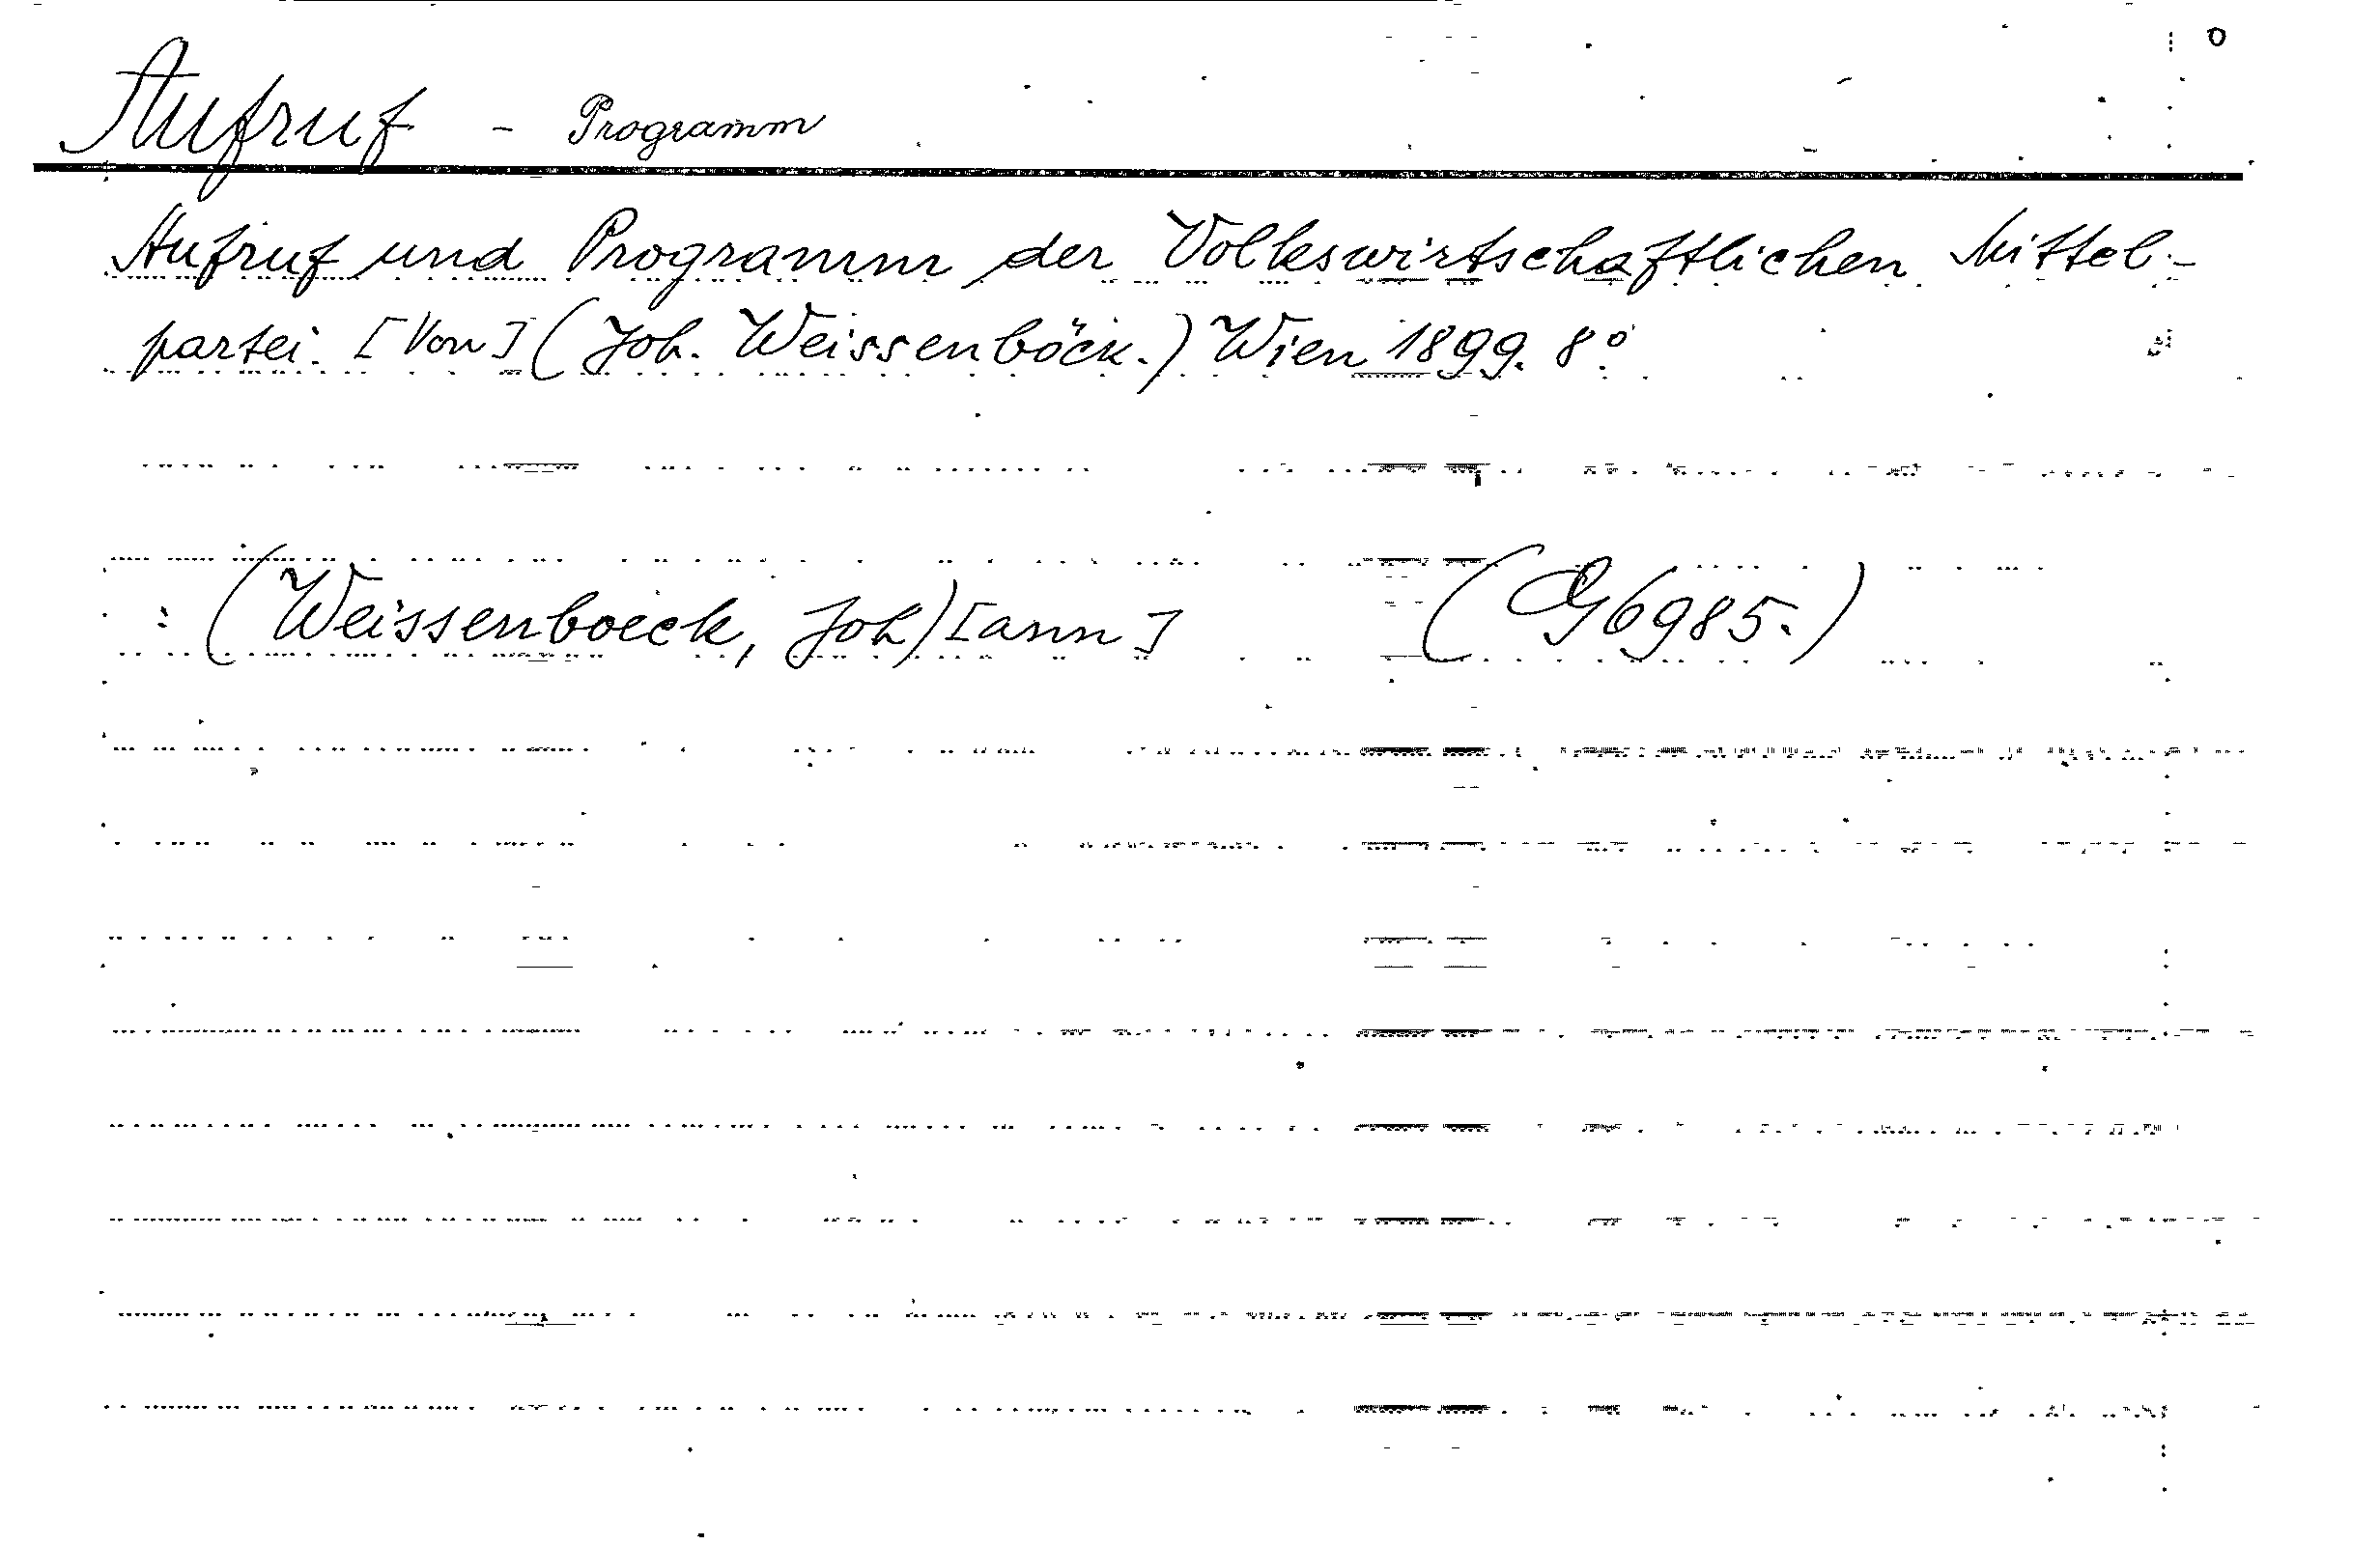 o
Aufruf - Programm
Aufruf und Programm der Volkswirtschaftlichen Mittel-
partei. [Von] (Joh. Weissenböck.) Wien 1899. 8°.
: (Weissenboeck, Joh)[ann] (G6985.)